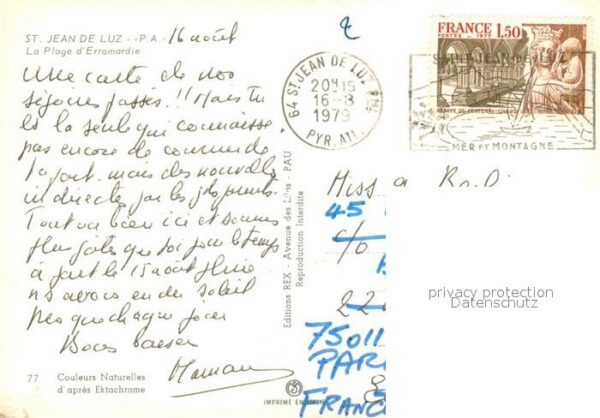 ST. JEAN DE LUZ - «P.A.» 16 août
La Plage d'Erromardie
Une carte de nos
séjours passés !! Mais tu
es la seule que connaisse
pas encore de courrier de
mais des nouvelles
indirectes par les
Tout va bien ici et sommes
plus gâtés que toi pour le temps
à part le 15 août pluie
ns avons eu du soleil
presque chaque jour
Bons baisers
Maman
77 Couleurs Naturelles
d'après Ektachrome
Editions REX - Avenue des Lilas - PAU
Reproduction Interdite
IMPRIMÉ EN
64 ST JEAN DE LUZ PPAL
20H15
16-8
1979
PYR. ATL.
FRANCE 1,50
POSTES 1977
ABBAYE DE FONTENAY
SAINT JEAN DE LUZ
MER ET MONTAGNE
Miss
45
c/o
22
75011
PAR
FRANC
privacy protection
Datenschutz